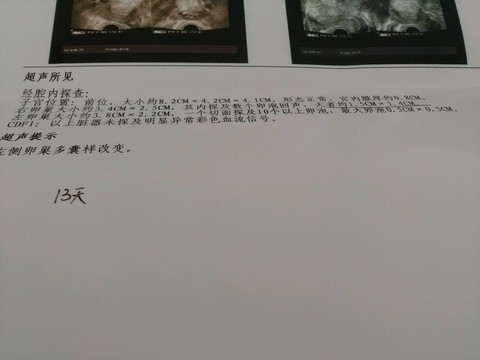 超声所见
经腔内探查：
子宫位置：前位，大小约8.2CM×4.2CM×4.1CM，形态正常，宫内膜厚约0.8CM。
右卵巢大小约3.4CM×2.5CM，其内探及数个卵泡回声，大者约1.5CM×1.4CM。
左卵巢大小约3.8CM×2.2CM，一个切面探及10个以上卵泡，最大卵泡0.5CM×0.5CM。
CDFI：以上脏器未探及明显异常彩色血流信号。
超声提示
左侧卵巢多囊样改变。
13天